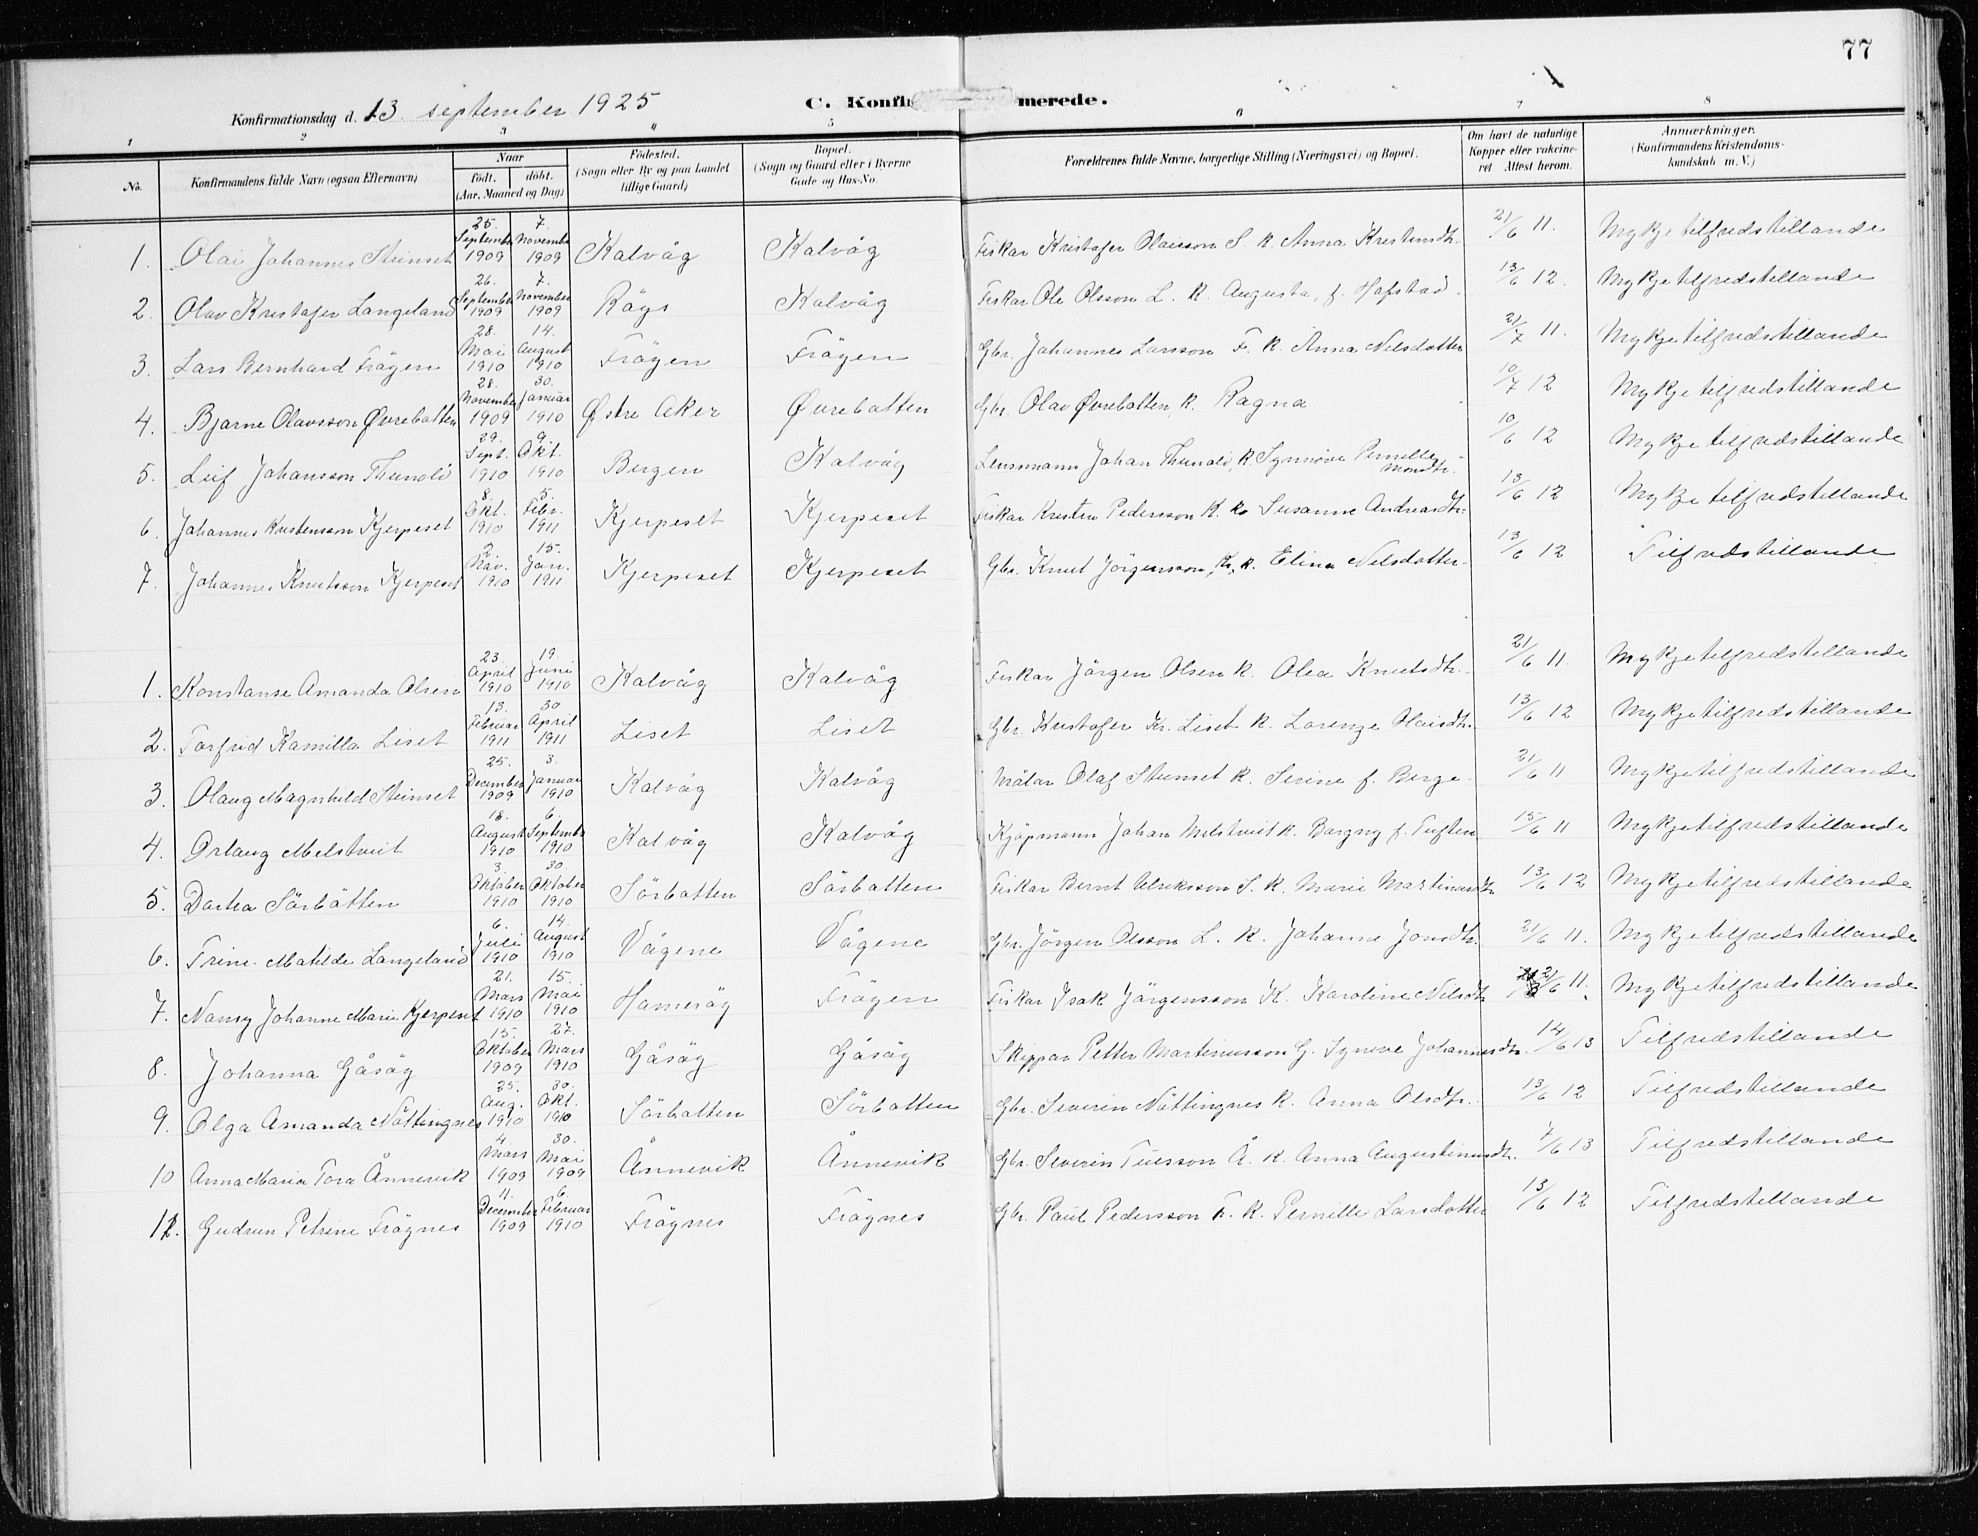 77
Konfirmationsdag d. 13. september 1925 C. Konfir merede.
1 2 3 4 5 6 7 8
No. Konfirmandens fulde Navn (ogsaa Efternavn) Naar født. døbt. (Aar, Maaned og Dag) Fødested. (Sogn eller By og paa Landet tillige Gaard) Bopæl. (Sogn og Gaard eller i Byerne Gade og Hus-No. Forældrenes fulde Navne, borgerlige Stilling (Næringsvei) og Bopæl. Om havt de naturlige Kopper eller vakcineret Attest herom. Anmærkninger. (Konfirmandens Kristendomskundskab m. V.)
1. Olai Johannes Steinset 25. September 1909 7. November 1909 Kalvåg Kalvåg Fiskar Kristofer Olaisson S. k. Anna Kristensdtr. 21/6 11. Mykje tilfredstillande
2. Olav Kristofer Langeland 26. September 1909 7. November 1909 Rågs Kalvåg Fiskar Ole Olsson L. k. Augusta, f. Hafstad. 13/6 12. Mykje tilfredstillande
3. Lars Bernhard Frøyen 28. Mai 1910 14. August 1910 Frøyen Frøyen Gbr. Johannes Larsson F. k. Anna Nilsdotter 21/7 11. Mykje tilfredstillande
4. Bjarne Olavsson Øvrebotten 28. November 1909 30. Januar 1910 Østre Aker Øvrebotten Gbr. Olav Øvrebotten k. Ragna 10/7 12 Mykje tilfredstillande
5. Leif Johansson Thunold 29. Sept. 1910 9. Okt. 1910 Bergen Kalvåg Lensmann Johan Thunold, k. Synnøve Pernille Monsdtr. 10/6 12 Mykje tilfredstillande
6. Johannes Kristensson Kjerpeset 8. Okt. 1910 5. Febr. 1911 Kjerpeset Kjerpeset Fiskar Kristen Pedersson K. k. Susanne Andreasdtr. 13/6 12 Mykje tilfredstillande
7. Johannes Knutsson Kjerpeset 2. Nov. 1910 15. Jan. 1911 Kjerpeset Kjerpeset Gbr. Knut Jørgensson K. k. Elina Nilsdotter. 13/6 12 Tilfredstillande
1. Konstanse Amanda Olsen 23. April 1910 19. Juni 1910 Kalvåg Kalvåg Fiskar Jørgen Olsen k. Olea Knutsdtr. 21/6 11. Mykje tilfredstillande
2. Torfrid Kamilla Liset 13. Februar 1911 30 April 1911 Liset Liset Gbr. Kristofer Kr. Liset k. Lorenze Olaisdtr. 13/6 12 Mykje tilfredstillande
3. Olaug Magnhild Steinset 25. December 1909 3. Januar 1910 Kalvåg Kalvåg Målar Olaf Steinset k. Serine f. Berge. 21/6 11 Mykje tilfredstillande
4. Ørlaug Melstveit 18. August 1910 6. September 1910 Kalvåg Kalvåg Kjøpmann Johan Melstveit k. Borgny f. Tuften 15/6 11 Mykje tilfredstillande
5. Dortea Sørbøtten 3. Oktober 1910 30 Oktober 1910 Sørbotten Sørbotten Fiskar Bernt Ulriksson S. k. Marie Martinusdtr. 13/6 12 Mykje tilfredstillande
6. Trine Matilde Langeland 6. Juli 1910 14. August 1910 Vågene Vågene Gbr. Jørgen Olsson L. k. Johanne Jonsdtr. 21/6 11. Mykje tilfredstillande
7. Nanny Johanne Marie Kjerpeset 21. Mars 1910 15. Mai 1910 Hamerøy Frøyen Fiskar Isak Jørgensson K. Karoline Nilsdtr. 21/6 11. Mykje tilfredstillande
8. Johanna Gåsøy 15. Oktober 1909 27. Mars 1910 Gåsøy Gåsøy Skippar Petter Martinusson G. Synøve Johannesdtr. 14/6 13 Tilfredstillande
9. Olga Amanda Nøttingnes 25. Aug. 1910 30. Okt. 1910 Sørbotten Sørbotten Gbr. Severin Nøttingnes k. Anna Olsdtr. 13/6 12 Tilfredstillande
10 Anna Maria Tora Ånnevik 4. Mars 1909 30. Mai 1909 Ånnevik Ånnevik Gbr. Severin Å. k. Anna Augustinusdtr. 7/6 13 Tilfredstillande
11. Gudrun Petrine Frøynes 11. December 1909 6. Februar 1910 Frøynes Frøynes Gbr. Paul Pedersson F. k. Pernille Larsdotter 13/6 12 Tilfredstillande